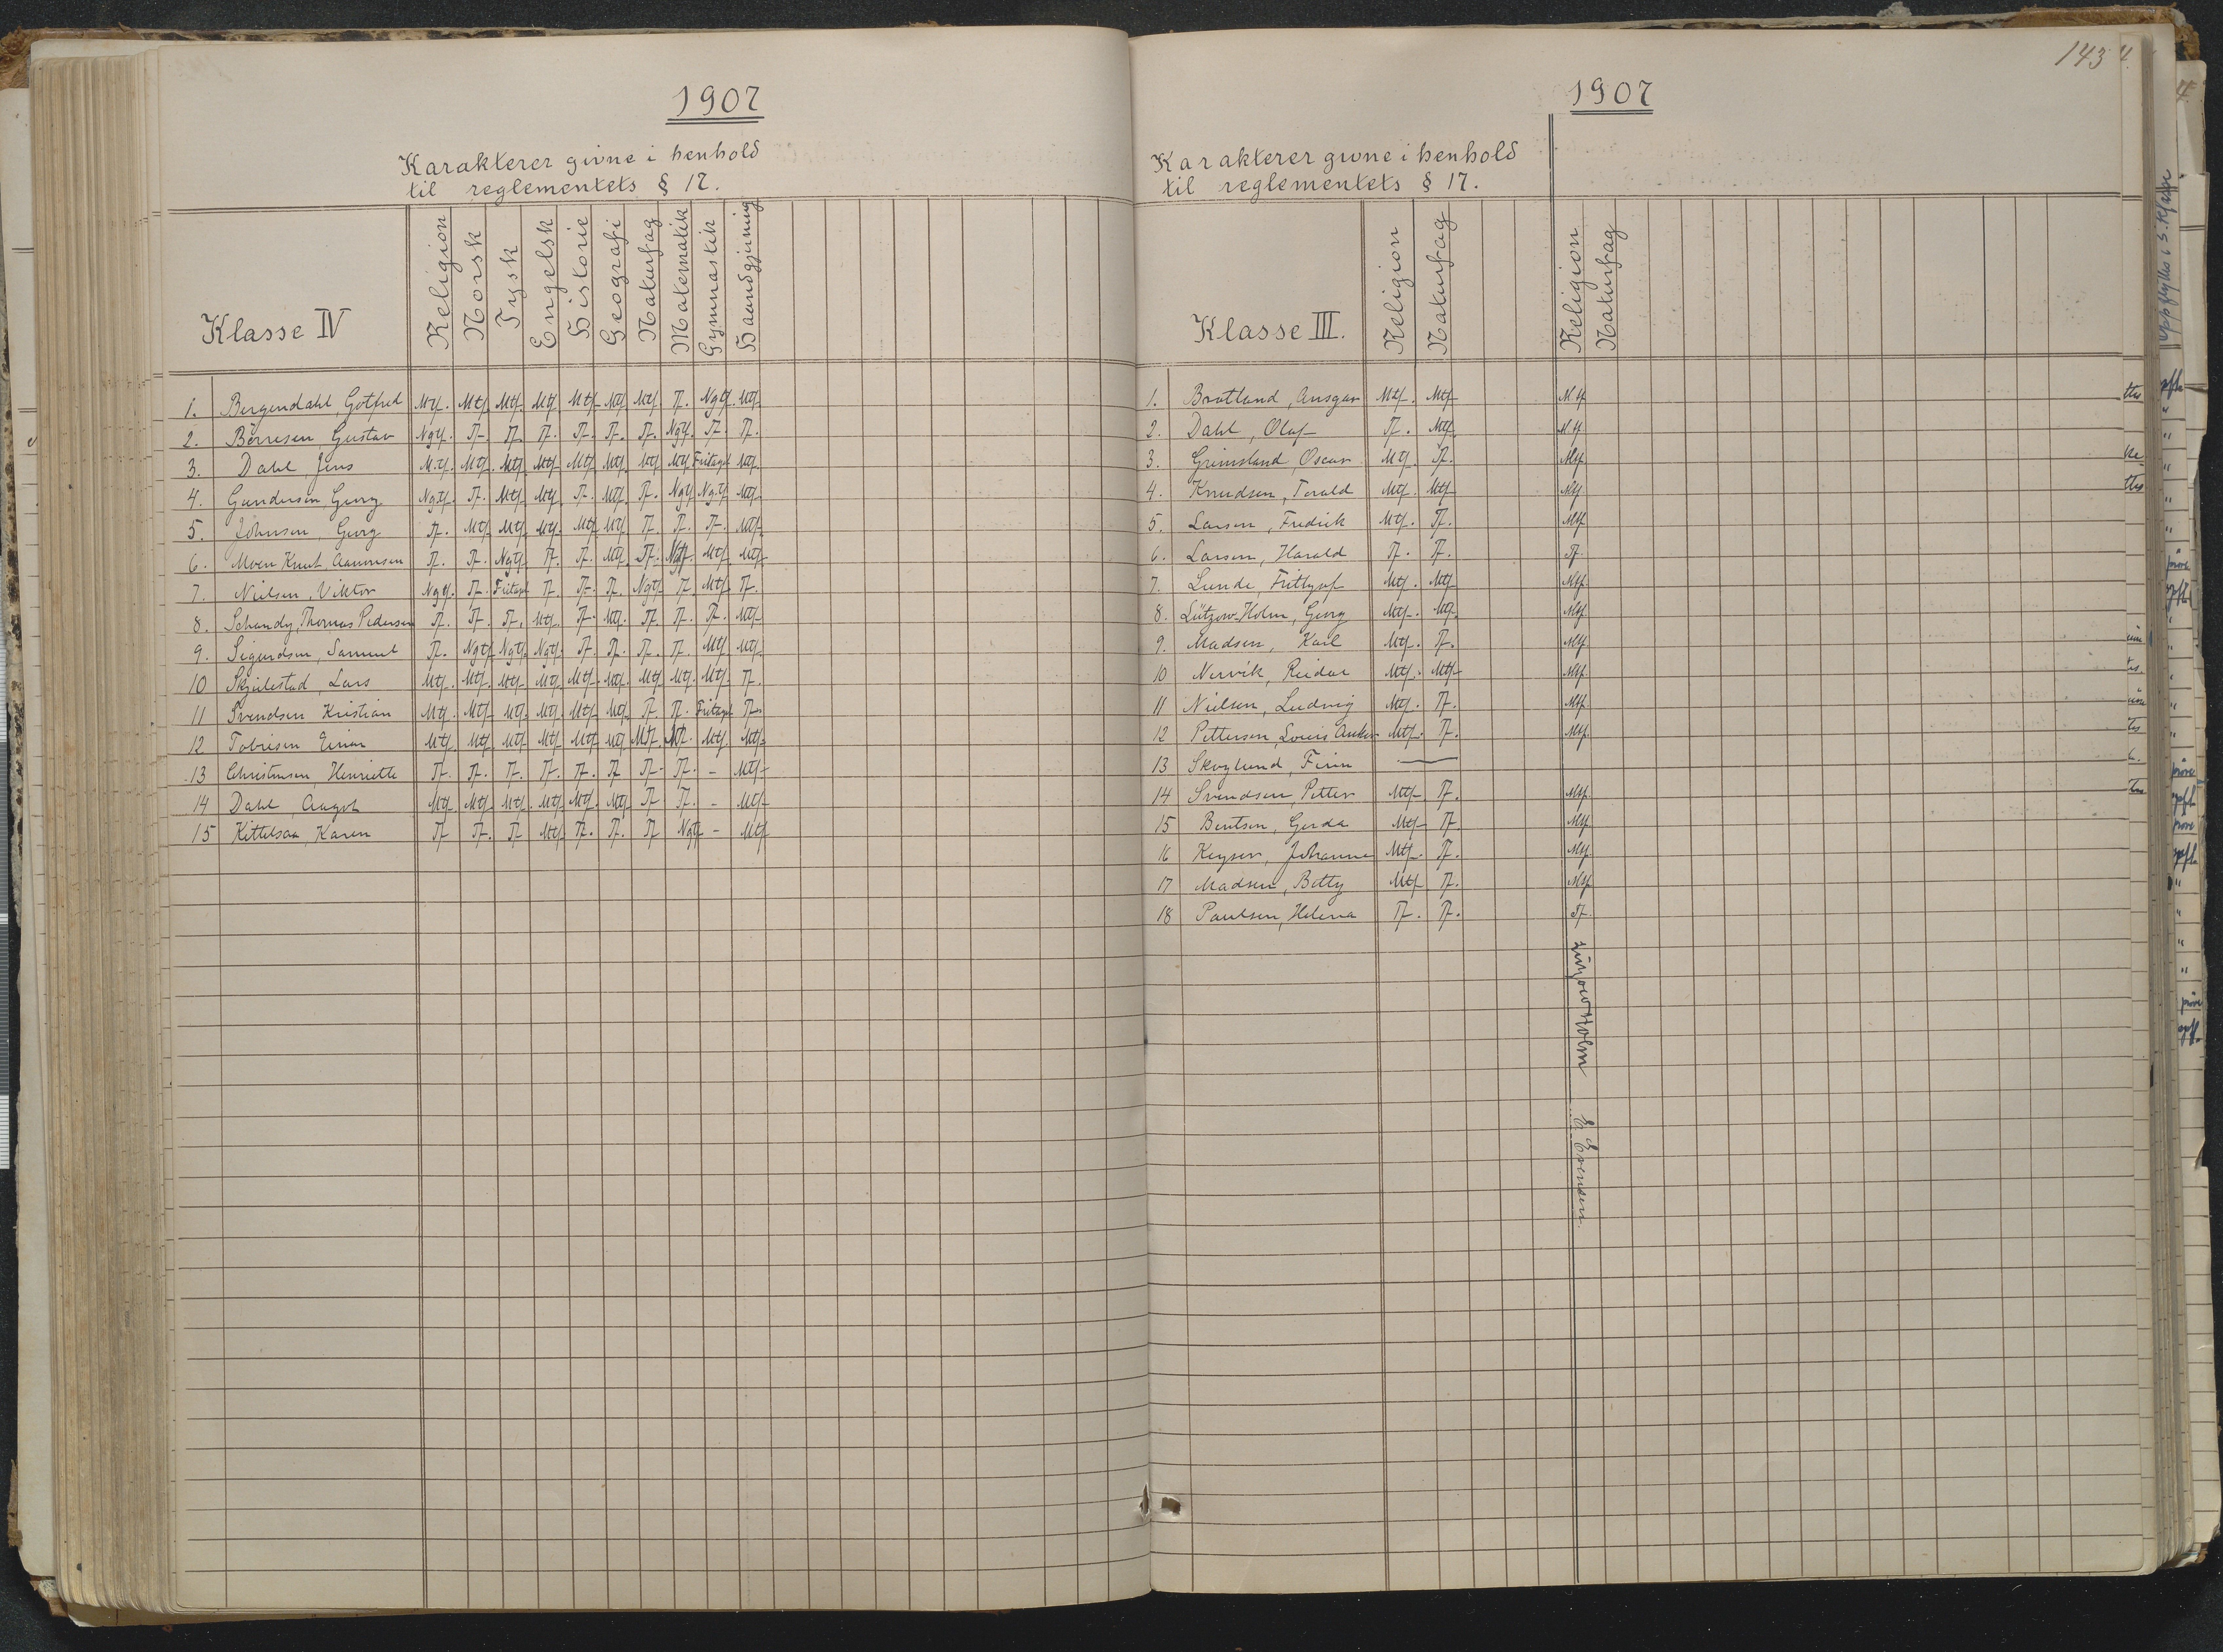 1907
Karakterer givne i henhold
til reglementets § 17.
Klasse IV Religion Norsk Tysk Engelsk Historie Geografi Naturfag Matematik Gymnastik Haandgjerning
1. Bergendahl, Gotfred Mtf. Mtf. Mtf. Mtf. Mtf. Mtf. Mtf. Tf. Ngtf. Mtf.
2. Børresen Gustav Ngtf. Tf. Tf. Tf. Tf. Tf. Tf. Ngtf. Tf. Tf.
3. Dahl Jens Mtf. Mtf. Mtf. Mtf. Mtf. Mtf. Mtf. Mtf. Fritaget Mtf.
4. Gundersen Georg Ngtf. Tf. Mtf. Mtf. Tf. Mtf. Tf. Ngtf. Ngtf. Mtf.
5. Johnsen, Georg Tf. Mtf. Mtf. Mtf. Mtf. Mtf. Tf. Tf. Tf. Mtf.
6. Moen Knut Aanonsen Tf. Tf. Ngtf. Tf. Tf. Mtf. Tf. Mtf. Mtf.
7. Nielsen, Viktor Ngtf. Tf. Fritaget Tf. Tf. Tf. Ngtf. Tf. Mtf. Tf.
8. Schandy, Thomas Pedersen Tf. Tf. Tf. Mtf. Tf. Mtf. Tf. Tf. Tf. Mtf.
9. Sigurdsen, Samuel Tf. Ngtf. Ngtf. Ngtf. Tf. Tf. Tf. Tf. Mtf. Mtf.
10 Skjulestad, Lars Mtf. Mtf. Mtf. Mtf. Mtf. Mtf. Mtf. Mtf. Mtf. Tf.
11 Svendsen Kristian Mtf. Mtf. Mtf. Mtf. Mtf. Mtf. Tf. Tf. Fritaget Tf.
12 Tobiesen Einar Mtf. Mtf. Mtf. Mtf. Mtf. Mtf. Mtf. Mtf. Mtf.
13 Christensen Henriette Tf. Tf. Tf. Tf. Tf. Tf. Tf. Tf. - Mtf.
14 Dahl Aagot Mtf. Mtf. Mtf. Mtf. Mtf. Mtf. Tf. Tf. - Mtf.
15 Kittelsaa, Karen Tf. Tf. Tf. Mtf. Tf. Tf. Tf. Ngtf. - Mtf.
143
1907
Karakterer givne i henhold
til reglementets § 17.
Klasse III. Religion Naturfag Religion Naturfag
1. Bratland, Ansgar Mtf. Mtf. Mtf.
2. Dahl, Olaf Tf. Mtf. Mtf.
3. Grimsland, Oscar Mtf. Tf. Mtf.
4. Knudsen, Torald Mtf. Mtf. Mtf.
5. Larsen, Fredrik Mtf. Tf. Mtf.
6. Larsen, Harald Tf. Tf. Tf.
7. Lunde, Frithjof Mtf. Mtf. Mtf.
8. Lützow-Holm, Georg Mtf. Mtf. Mtf.
9. Madsen, Karl Mtf. Tf. Mtf.
10 Nervik, Reidar Mtf. Mtf. Mtf.
11 Nielsen, Ludvig Mtf. Tf. Mtf.
12 Pettersen, Louis Anker Mtf. Tf. Mtf.
13 Skoglund, Finn —
14 Svendsen, Petter Mtf. Tf. Mtf.
15 Bentsen, Gerda Mtf. Tf. Mtf.
16 Keyser, Johanne Mtf. Tf. Mtf.
17 Madsen, Betty Mtf. Tf. Mtf.
18 Paulsen, Helena Tf. Tf. Tf.
Lützow Holm